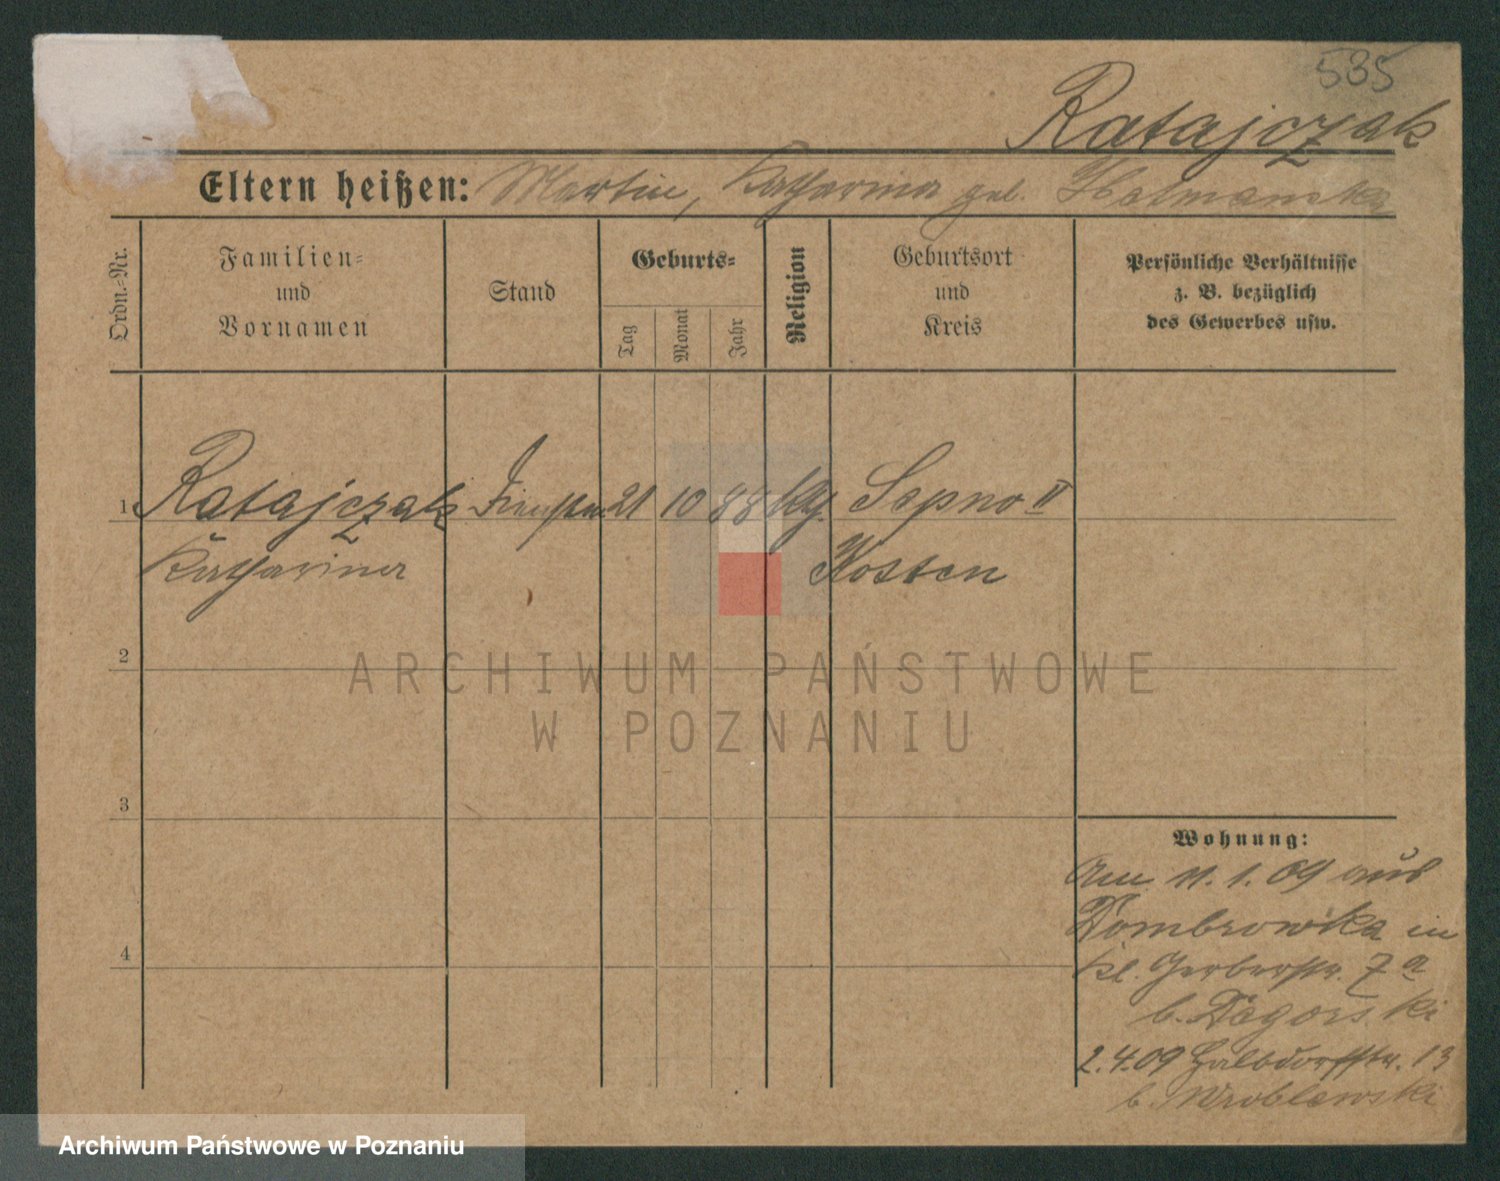 535
Ratajczak
Eltern heißen: Martin, Katharina geb.
Ordn.-Nr.
Familien-
und
Vornamen
Stand
Geburts-
Tag
Monat
Jahr
Religion
Geburtsort
und
Kreis
Persönliche Verhältnisse
z. B. bezüglich
des Gewerbes usw.
1 Ratajczak 21 10 88 Sepno II
Katharina Kosten
2
ARCHIWUM PAŃSTWOWE
W POZNANIU
3
Wohnung:
Am 11.1.09 aus
Dombrowka in
4
Kl. Gerberstr. 7a
b.
2.4.09 Halbdorfstr. 13
b. Wroblewski
Archiwum Państwowe w Poznaniu